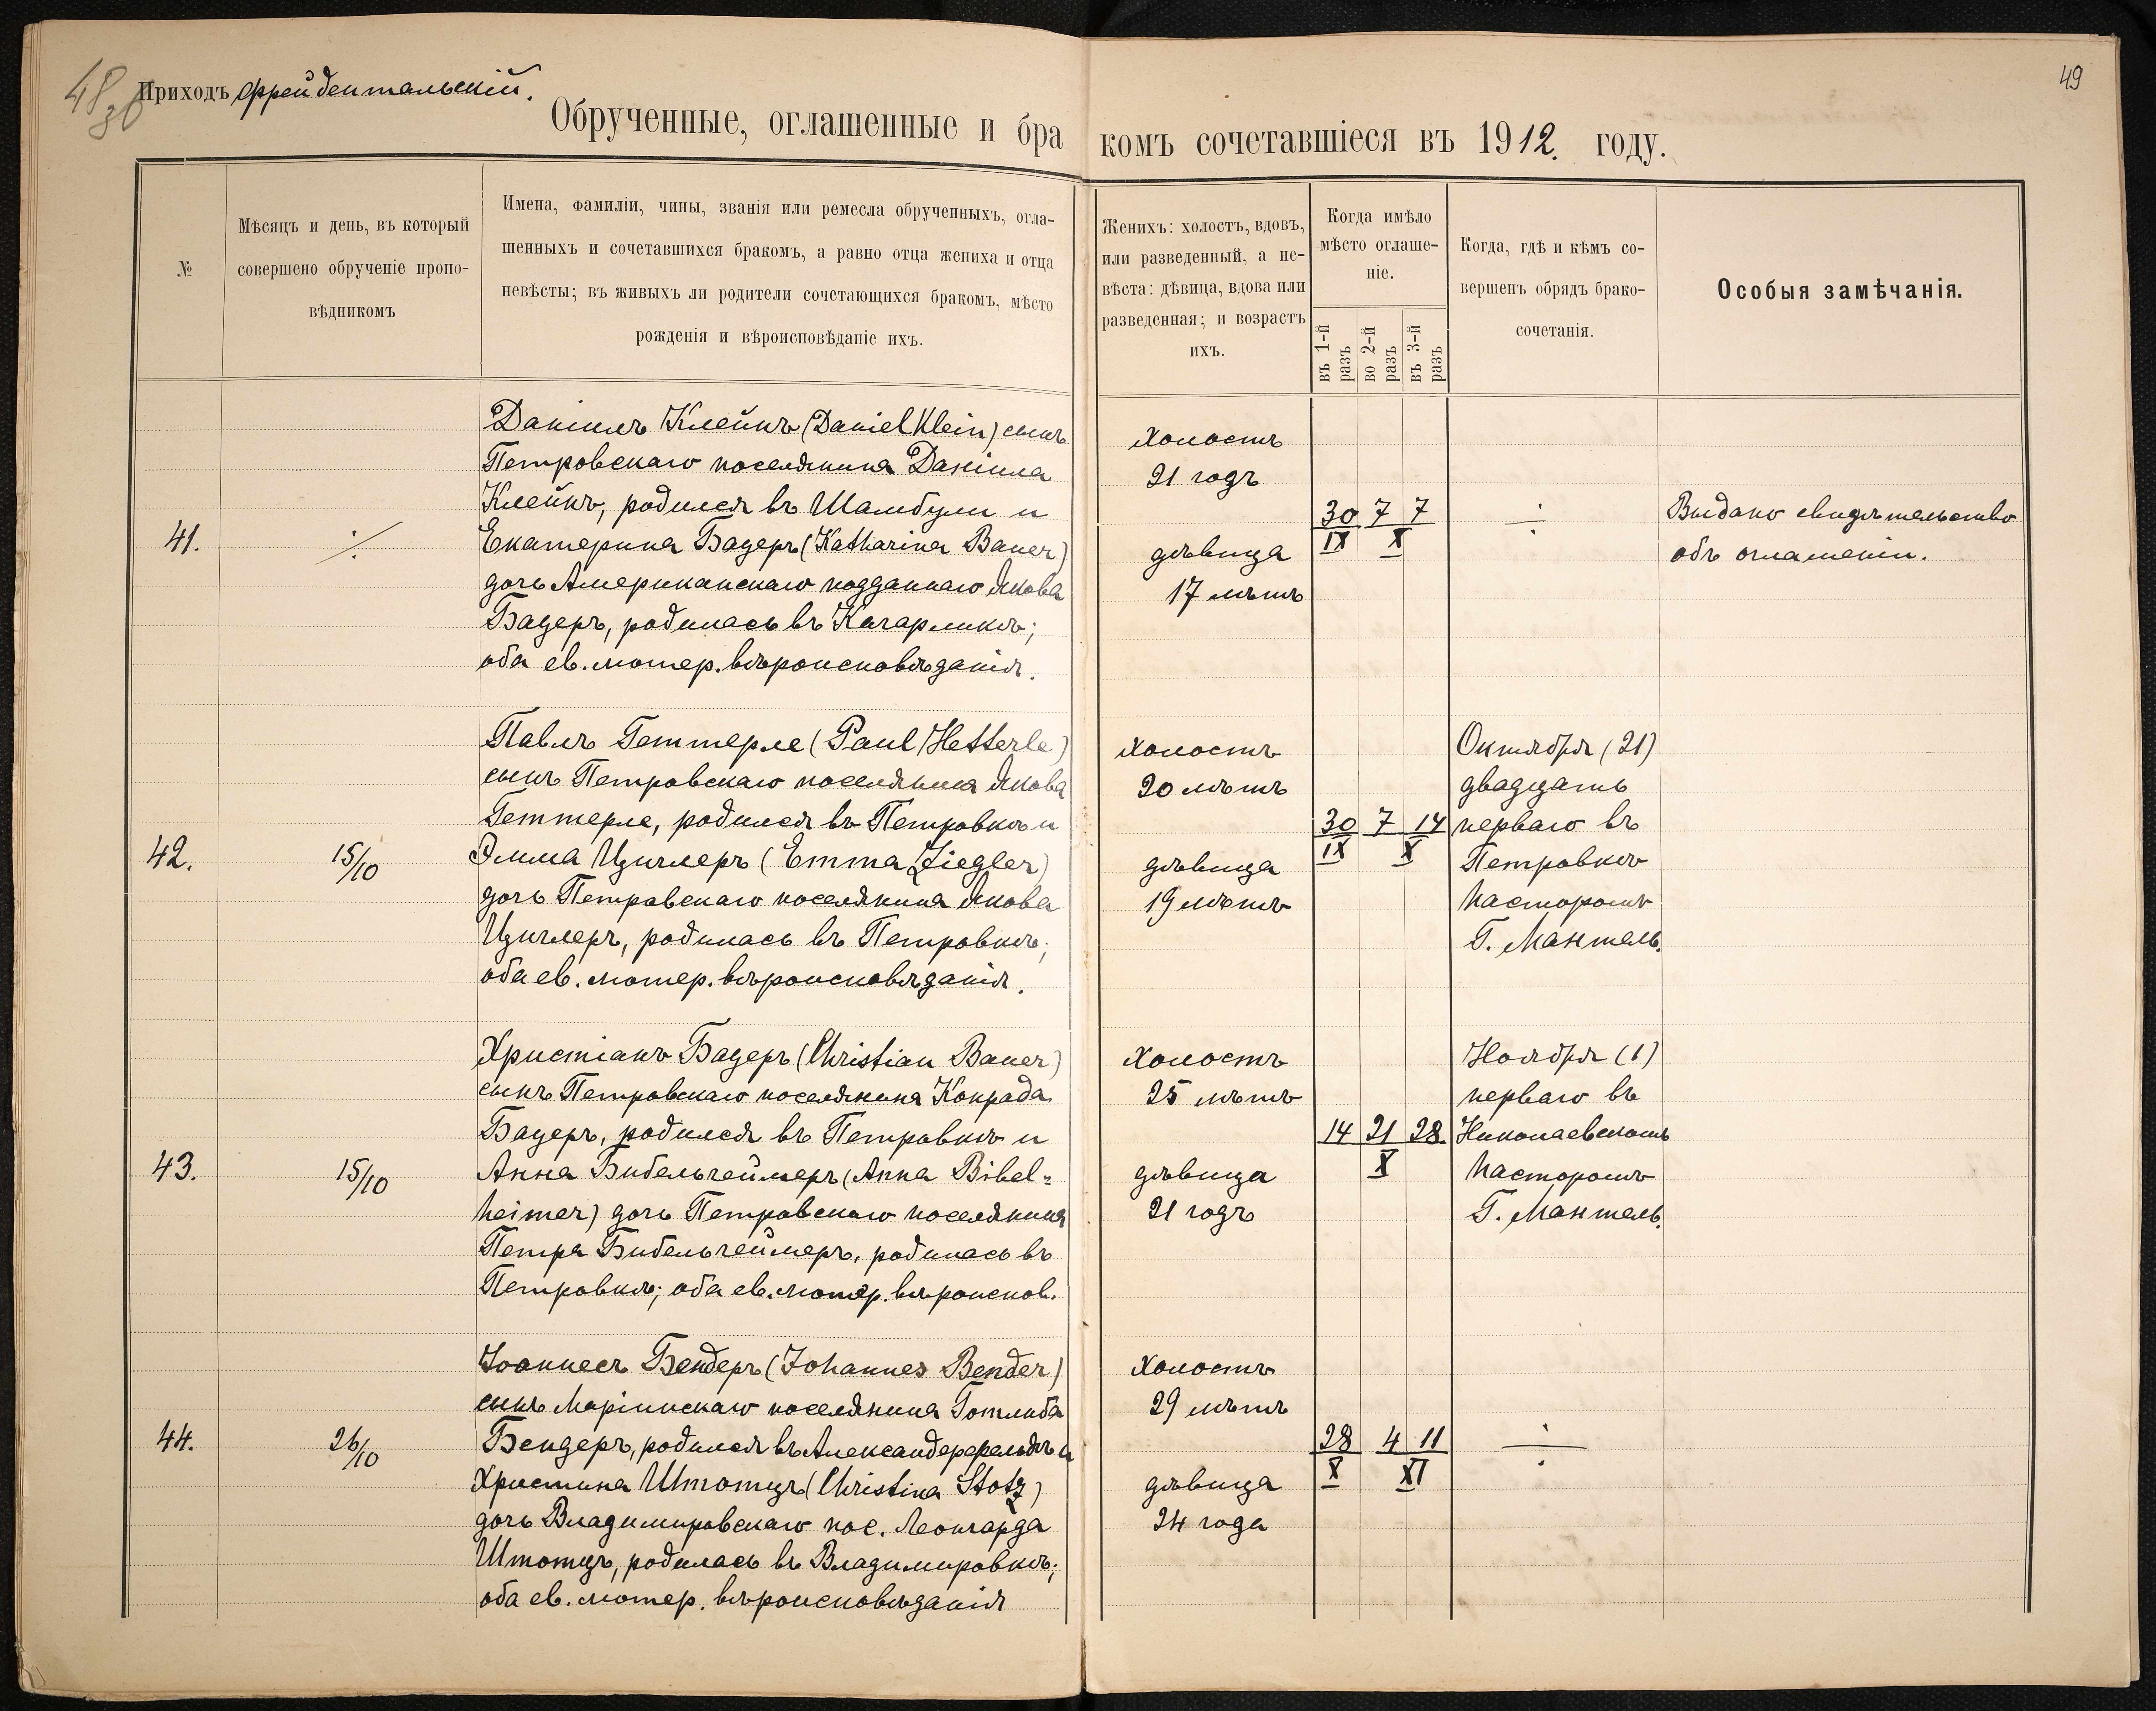 48
Приходъ Фрейдентальскій.
49
Обрученные, оглашенные и бра комъ сочетавшіеся въ 1912. году.
№
Мѣсяцъ и день, въ который
совершено обрученіе пропо-
вѣдникомъ
Имена, фамиліи, чины, званія или ремесла обрученныхъ, огла-
шенныхъ и сочетавшихся бракомъ, а равно отца жениха и отца
невѣсты; въ живыхъ ли родители сочетающихся бракомъ, мѣсто
рожденія и вѣроисповѣданіе ихъ.
Женихъ: холостъ, вдовъ,
или разведенный, а не-
вѣста: дѣвица, вдова или
разведенная; и возрастъ
ихъ.
Когда имѣло
мѣсто оглаше-
ніе.
въ 1-й разъ
во 2-й разъ
въ 3-й разъ
Когда, гдѣ и кѣмъ со-
вершенъ обрядъ брако-
сочетанія.
Особыя замѣчанія.
41.
÷
Даніилъ Клейнъ (Daniel Klein) сынъ
Петровскаго поселянина Даніила
Клейнъ, родился въ Шамбули и
Екатерина Бауеръ (Katharina Bauer)
дочь Американскаго подданнаго Якова
Бауеръ, родилась въ Кагарликѣ;
оба ев. лютер. вѣроисповѣданія.
холостъ
21 годъ
дѣвица
17 лѣтъ
30 7 7
IX X
÷
Выдано свидѣтельство
объ оглашеніи.
42.
15/10
Павлъ Геттерле (Paul Hetterle)
сынъ Петровскаго поселянина Якова
Геттерле, родился въ Петровкѣ и
Эмма Циглеръ (Emma Ziegler)
дочь Петровскаго поселянина Якова
Циглеръ, родилась въ Петровкѣ;
оба ев. лютер. вѣроисповѣданія.
холостъ
20 лѣтъ
дѣвица
19 лѣтъ
30 7 14
IX X
Октября (21)
двадцать
перваго въ
Петровкѣ
пасторомъ
Г. Мантель.
43.
15/10
Христіанъ Бауеръ (Christian Bauer)
сынъ Петровскаго поселянина Конрада
Бауеръ, родился въ Петровкѣ и
Анна Бибельгеймеръ (Anna Bibel=
heimer) дочь Петровскаго поселянина
Петра Бибельгеймеръ, родилась въ
Петровкѣ; оба ев. лютер. вѣроиспов.
холостъ
25 лѣтъ
дѣвица
21 годъ
14 21 28
X
Ноября (1)
перваго въ
Николаевскомъ
пасторомъ
Г. Мантель.
44.
26/10
Іоаннесъ Бендеръ (Johannes Bender)
сынъ Маріинскаго поселянина Готлиба
Бендеръ, родился въ Александерфельдѣ и
Христина Штотцъ (Christina Stotz)
дочь Владимировскаго пос. Леонгарда
Штотцъ, родилась въ Владимировкѣ;
оба ев. лютер. вѣроисповѣданія
холостъ
29 лѣтъ
дѣвица
24 года
28 4 11
X XI
÷